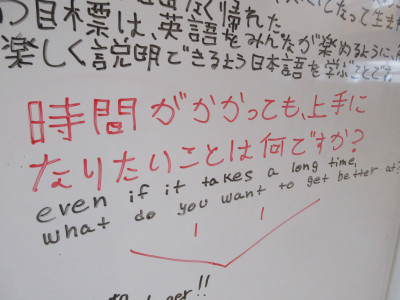 目標は、英語をみんなが楽めるように、
楽しく説明できるよう日本語を学ぶことです。
時間がかかっても、上手に
なりたいことは何ですか？
even if it takes a long time,
what do you want to get better at?